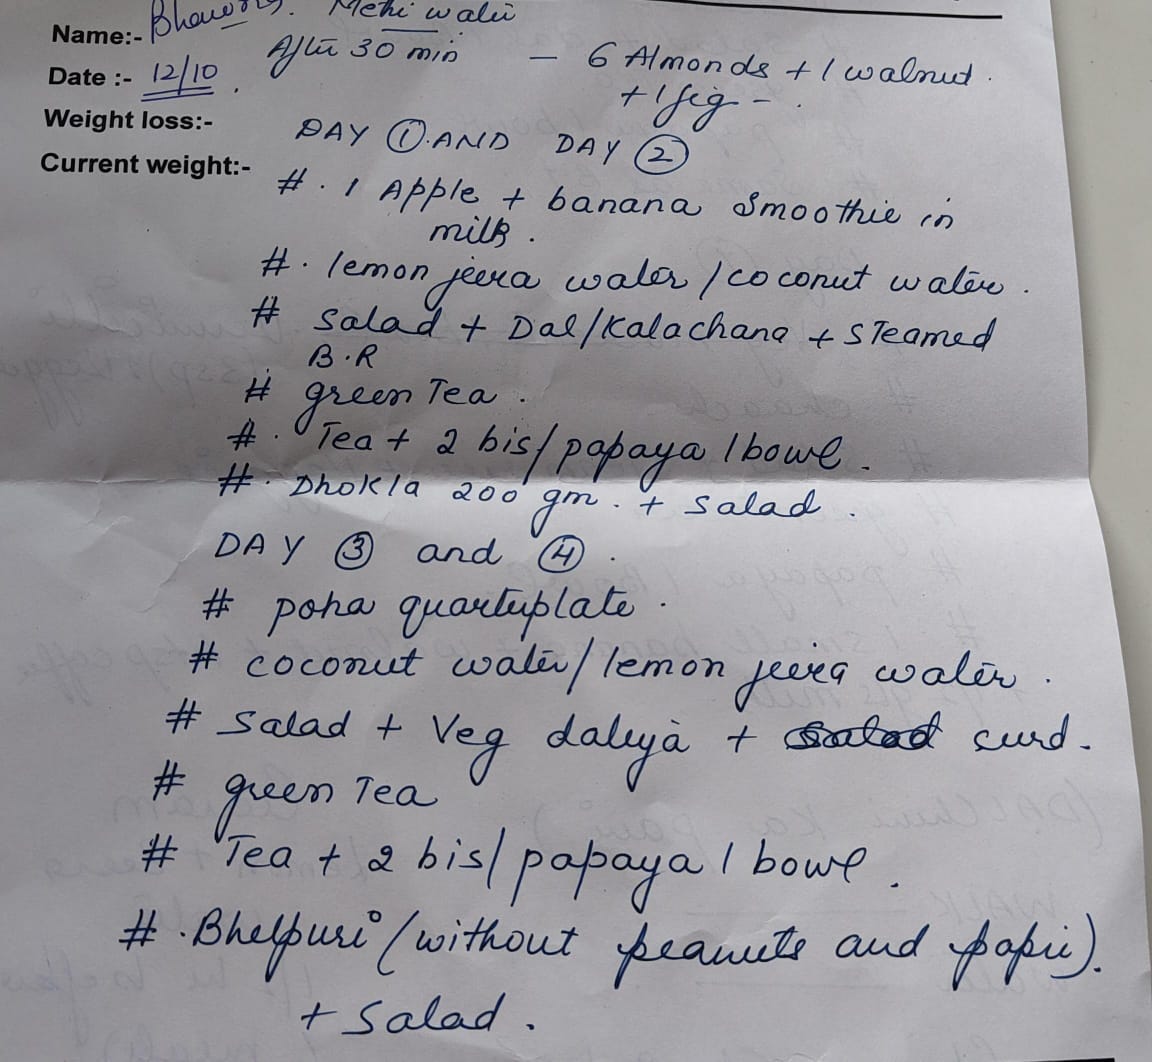 Name:- Methi water
After 30 min — 6 Almonds + 1 walnut.
Date :- 12/10.
+ 1 fig -.
Weight loss:-
DAY ① AND DAY ②
Current weight:-
#. 1 Apple + banana smoothie in
milk.
#. lemon jeera water / coconut water.
# Salad + Dal/Kalachana + STeamed
B.R
# green Tea.
#. Tea + 2 bis/papaya 1 bowl.
#. Dhokla 200 gm. + salad.
DAY ③ and ④.
# poha quarterplate.
# coconut water/lemon jeera water.
# Salad + Veg daliya + curd.
# green Tea
# Tea + 2 bis/papaya 1 bowl.
#. Bhelpuri (without peanuts and papri).
+ Salad.